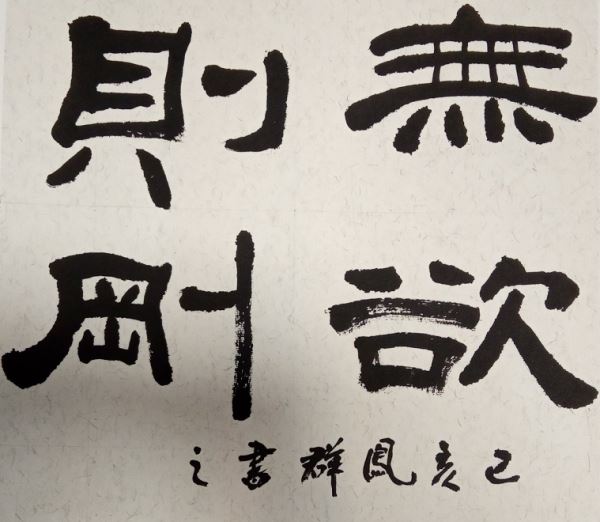 無欲
則剛
己亥鳳群書之